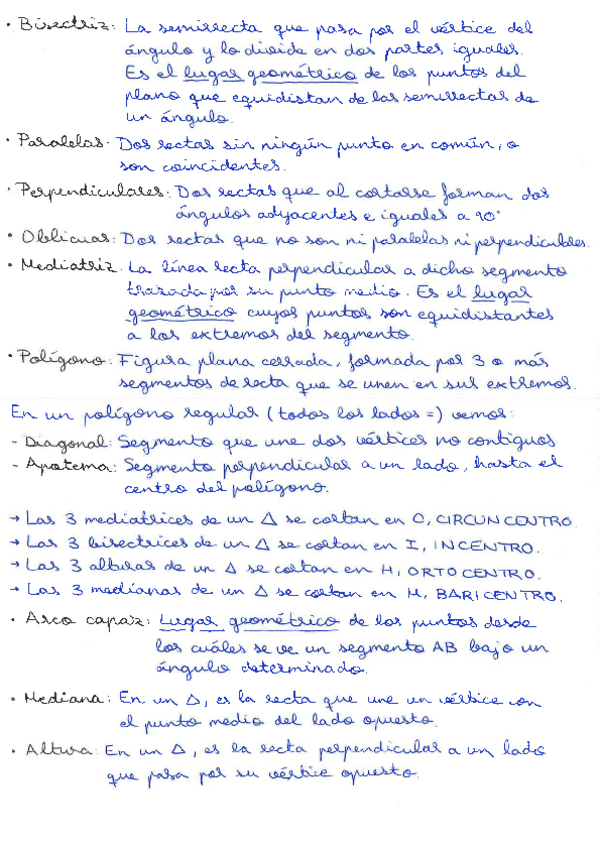 • Bisectriz: La semirrecta que pasa por el vértice del
ángulo y lo divide en dos partes iguales.
Es el lugar geométrico de los puntos del
plano que equidistan de las semirrectas de
un ángulo.
• Paralelas: Dos rectas sin ningún punto en común, o
son coincidentes.
• Perpendiculares: Dos rectas que al cortarse forman dos
ángulos adyacentes e iguales a 90°
• Oblicuas: Dos rectas que no son ni paralelas ni perpendiculares.
• Mediatriz. La línea recta perpendicular a dicho segmento
trazada por su punto medio. Es el lugar
geométrico cuyos puntos son equidistantes
a los extremos del segmento.
• Polígono: Figura plana cerrada, formada por 3 o más
segmentos de recta que se unen en sus extremos.
En un polígono regular (todos los lados =) vemos:
- Diagonal: Segmento que une dos vértices no contiguos
- Apotema: Segmento perpendicular a un lado, hasta el
centro del polígono.
→ Las 3 mediatrices de un △ se cortan en O, CIRCUNCENTRO.
→ Las 3 bisectrices de un △ se cortan en I, INCENTRO.
→ Las 3 alturas de un △ se cortan en H, ORTOCENTRO.
→ Las 3 medianas de un △ se cortan en M, BARICENTRO.
• Arco capaz: Lugar geométrico de los puntos desde
los cuáles se ve un segmento AB bajo un
ángulo determinado.
• Mediana: En un △, es la recta que une un vértice con
el punto medio del lado opuesto.
• Altura: En un △, es la recta perpendicular a un lado
que pasa por su vértice opuesto.